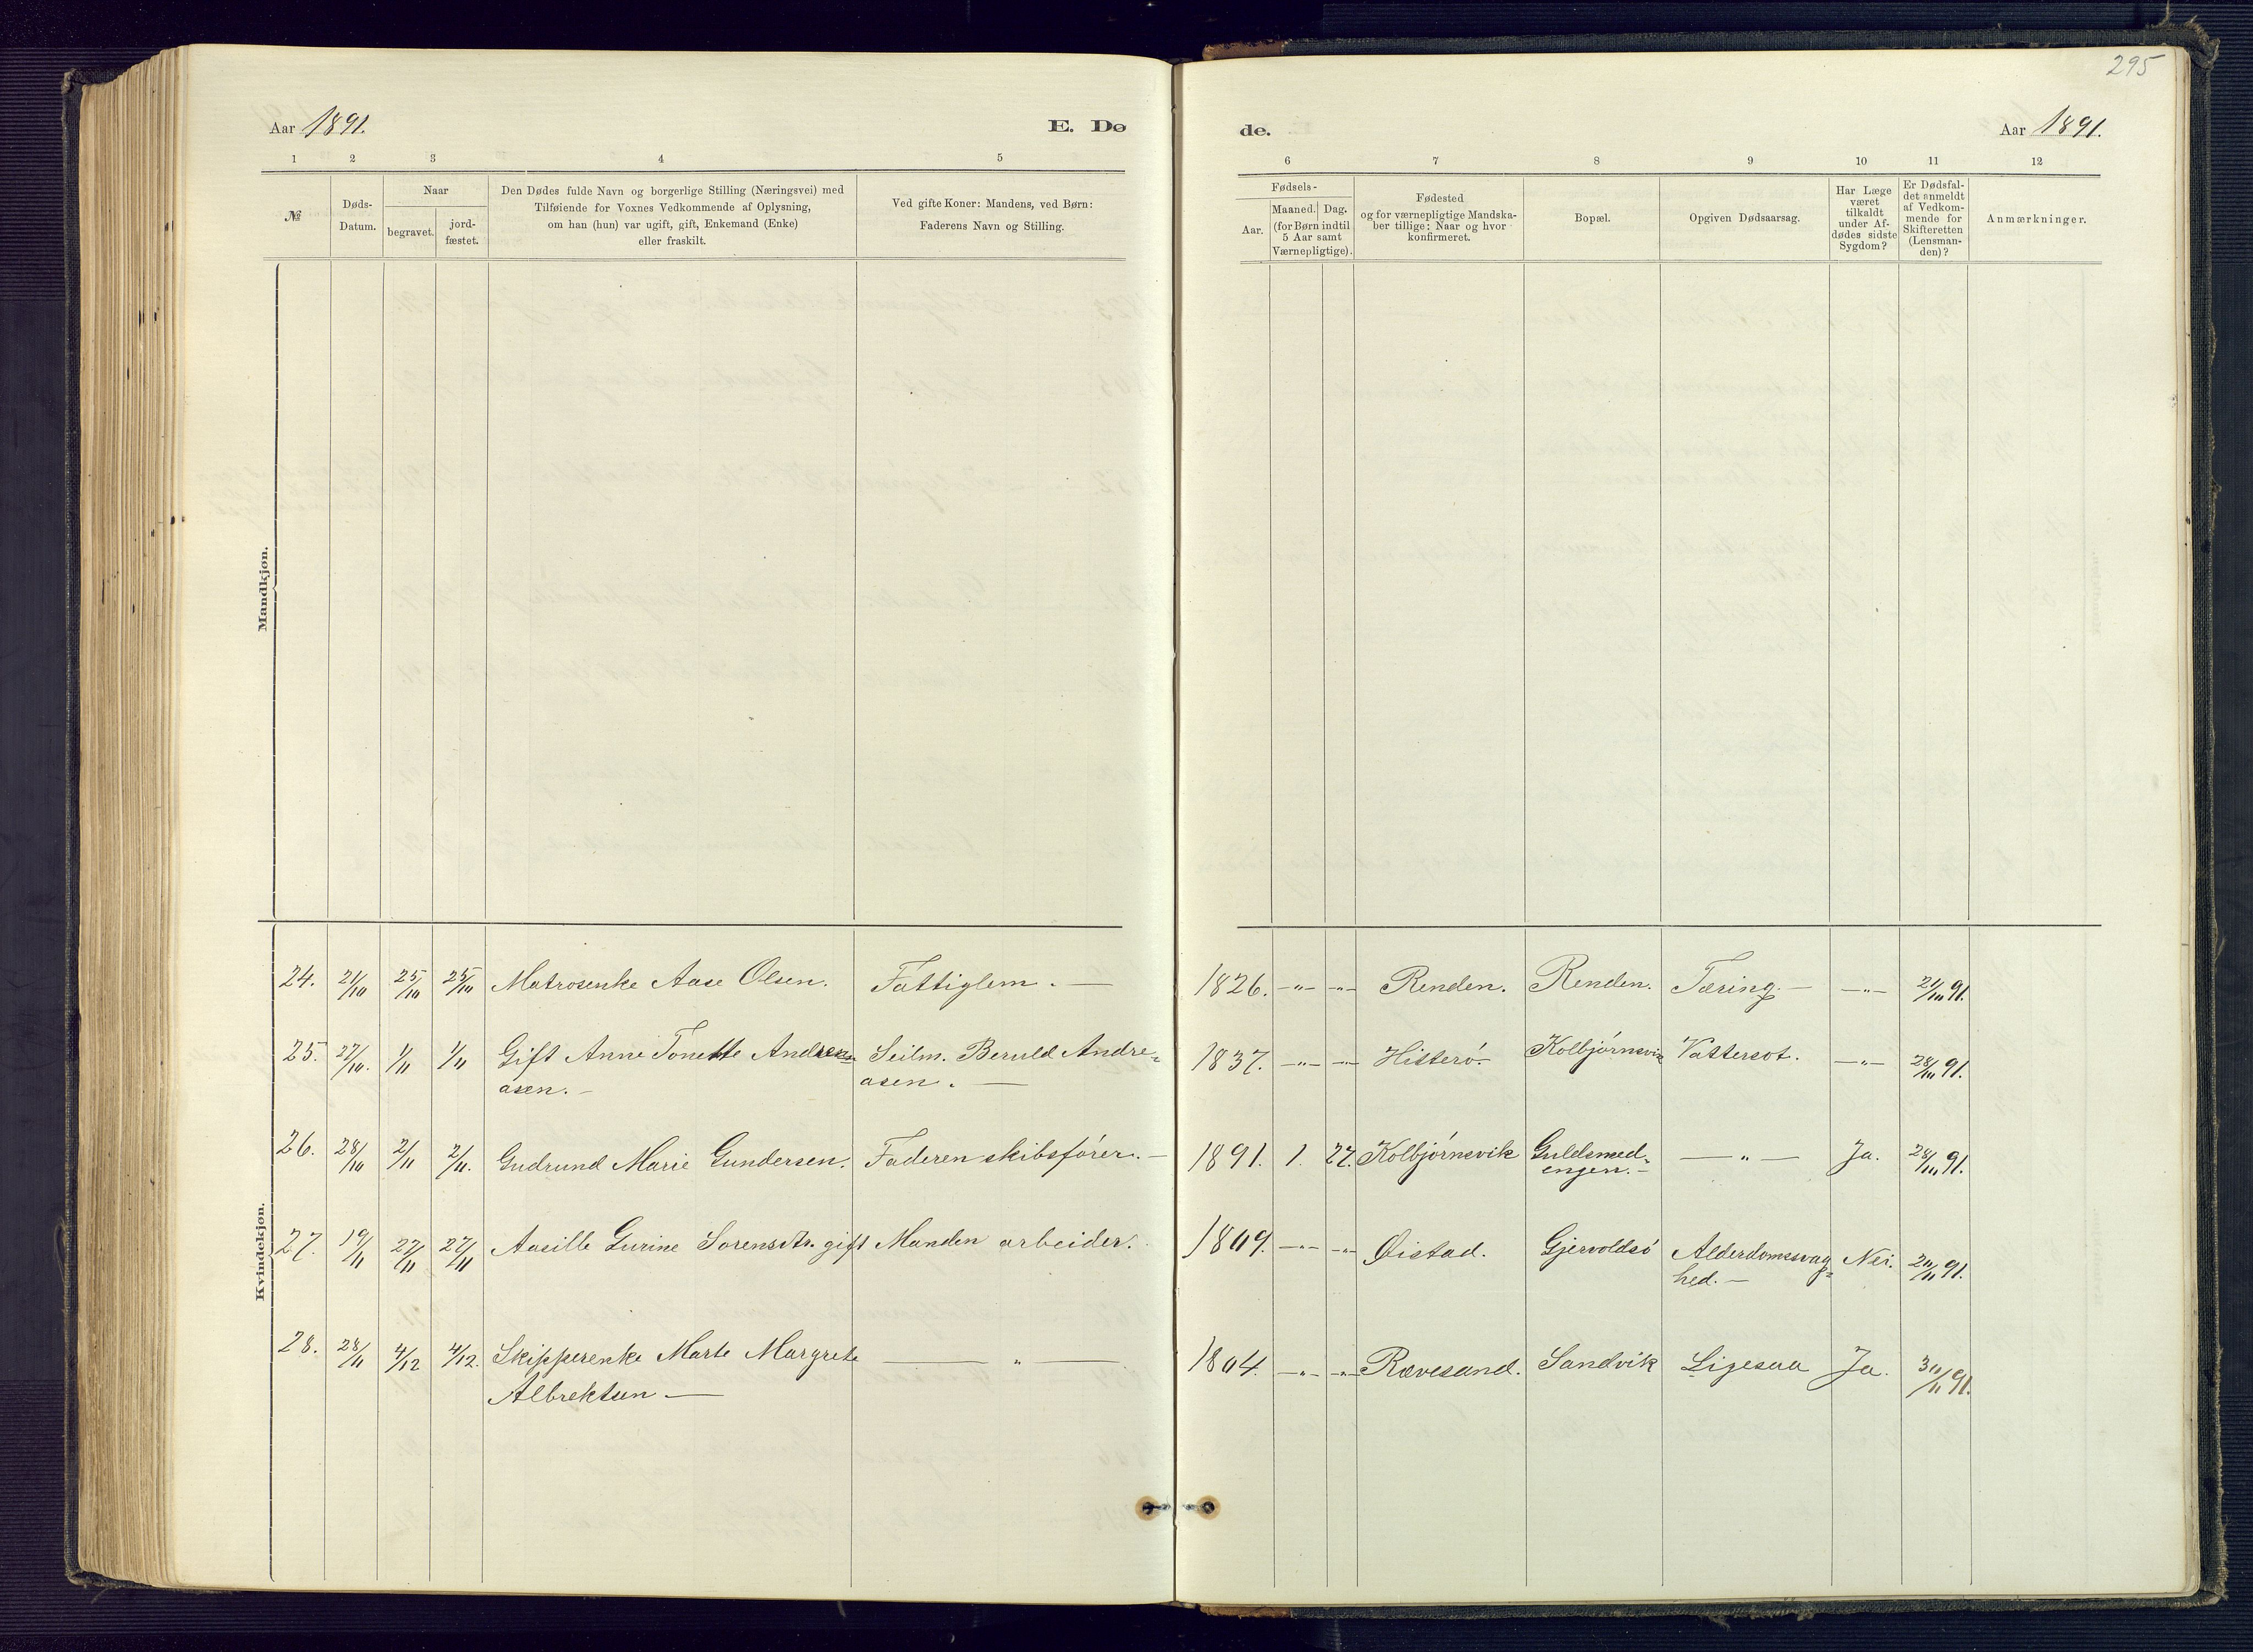 295
Aar 1891.
E. Dø
de.
Aar 1891.
1 2 3 4 5
6 7 8 9 10 11 12
№
Døds-
Datum.
Naar
begravet.
jord-
fæstet.
Den Dødes fulde Navn og borgerlige Stilling (Næringsvei) med
Tilføiende for Voxnes Vedkommende af Oplysning,
om han (hun) var ugift, gift, Enkemand (Enke)
eller fraskilt.
Ved gifte Koner: Mandens, ved Børn:
Faderens Navn og Stilling.
Fødsels-
Aar.
Maaned. Dag.
(for Børn indtil
5 Aar samt
Værnepligtige).
Fødested
og for værnepligtige Mandska-
ber tillige: Naar og hvor
konfirmeret.
Bopæl.
Opgiven Dødsaarsag.
Har Læge
været
tilkaldt
under Af-
dødes sidste
Sygdom?
Er Dødsfal-
det anmeldt
af Vedkom-
mende for
Skifteretten
(Lensman-
den)?
Anmærkninger.
Mandkjøn.
Kvindekjøn.
24. 21/10 25/10 25/10 Matrosenke Aase Olsen. Fattiglem. — 1826. —"— —"— Renden. Renden. Tæring. — —"— 21/10 91.
25. 27/10. 1/11 1/11 Gift Anne Tonette Andre- Seilm. Beruld Andre- 1837. —"— —"— Histerö. Kolbjörnsvik Vattersot. —"— 28/10 91.
asen. — asen. —
26. 28/10 2/11 2/11. Gudrund Marie Gundersen. Faderen skibsförer. — 1891. 1. 27. Kolbjörnsvik Guldsmed- —"— Ja. 28/10 91.
engen. —
27. 19/11 27/11 27/11 Aasille Gurine Sorensdtr. gift Manden arbeider. 1809. —"— —"— Öistad. Gjervoldsö Alderdomssvag- Nei. 20/11 91.
hed. —
28. 28/11 4/12 4/12. Skipperenke Marte Margrete —"— 1804. —"— —"— Rævesand. Sandvik Ligesaa Ja. 30/11 91.
Albrektsen —